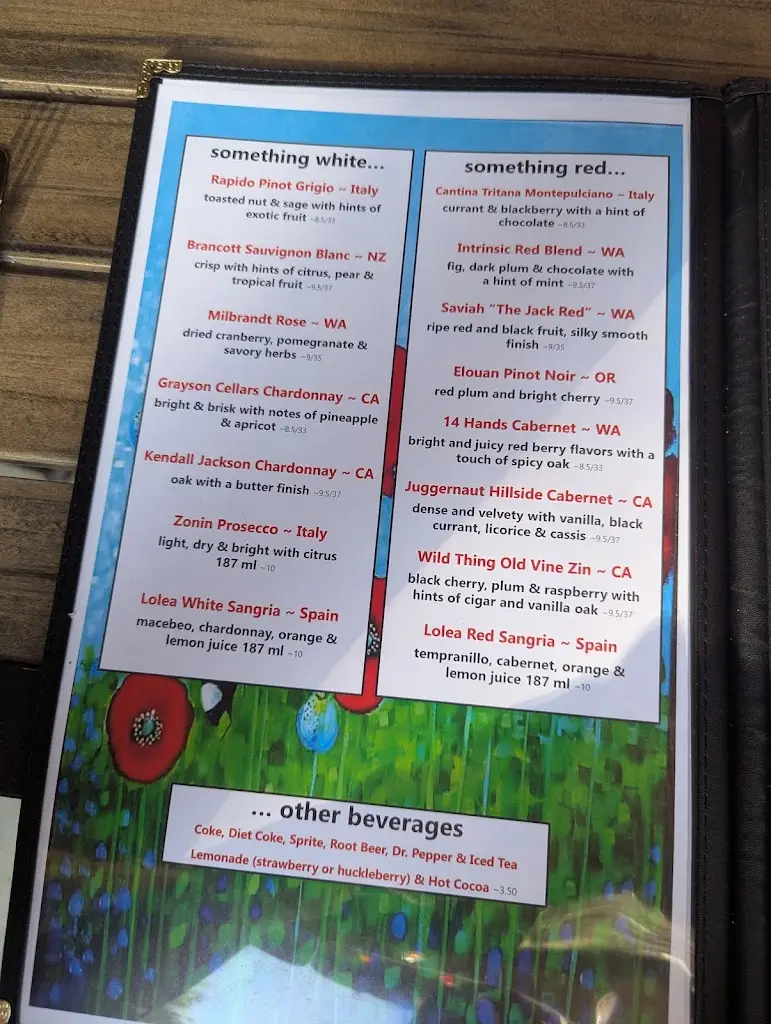 something white...
Rapido Pinot Grigio ~ Italy
toasted nut & sage with hints of
exotic fruit ~8.5/33
Brancott Sauvignon Blanc ~ NZ
crisp with hints of citrus, pear &
tropical fruit ~9.5/37
Milbrandt Rose ~ WA
dried cranberry, pomegranate &
savory herbs ~9/35
Grayson Cellars Chardonnay ~ CA
bright & brisk with notes of pineapple
& apricot ~8.5/33
Kendall Jackson Chardonnay ~ CA
oak with a butter finish ~9.5/37
Zonin Prosecco ~ Italy
light, dry & bright with citrus
187 ml ~10
Lolea White Sangria ~ Spain
macebeo, chardonnay, orange &
lemon juice 187 ml ~10
something red...
Cantina Tritana Montepulciano ~ Italy
currant & blackberry with a hint of
chocolate ~8.5/33
Intrinsic Red Blend ~ WA
fig, dark plum & chocolate with
a hint of mint ~9.5/37
Saviah "The Jack Red" ~ WA
ripe red and black fruit, silky smooth
finish ~9/35
Elouan Pinot Noir ~ OR
red plum and bright cherry ~9.5/37
14 Hands Cabernet ~ WA
bright and juicy red berry flavors with a
touch of spicy oak ~8.5/33
Juggernaut Hillside Cabernet ~ CA
dense and velvety with vanilla, black
currant, licorice & cassis ~9.5/37
Wild Thing Old Vine Zin ~ CA
black cherry, plum & raspberry with
hints of cigar and vanilla oak ~9.5/37
Lolea Red Sangria ~ Spain
tempranillo, cabernet, orange &
lemon juice 187 ml ~10
... other beverages
Coke, Diet Coke, Sprite, Root Beer, Dr. Pepper & Iced Tea
Lemonade (strawberry or huckleberry) & Hot Cocoa ~3.50